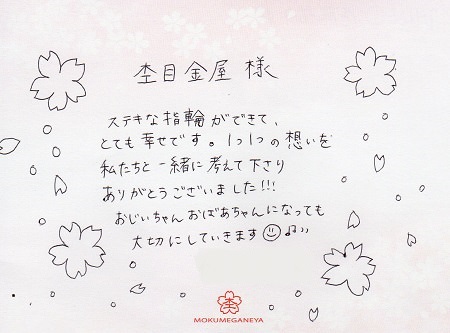 杢目金屋 様
ステキな指輪ができて、
とても幸せです。1つ1つの想いを
私たちと一緒に考えて下さり
ありがとうございました!!!
おじいちゃんおばあちゃんになっても
大切にしていきます
MOKUMEGANEYA